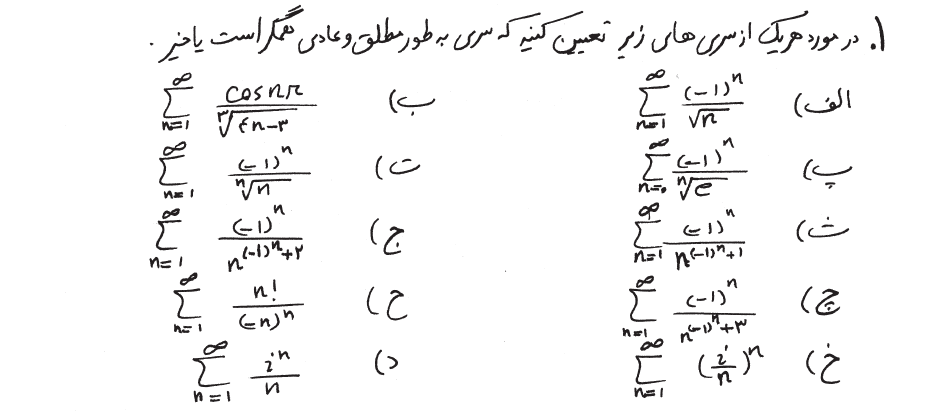 ۱. در مورد هر یک از سری های زیر تعیین کنید که سری به طور مطلق و عادی همگرا است یا خیر.
الف) $\sum_{n=1}^{\infty} \frac{(-1)^n}{\sqrt{n}}$ ب) $\sum_{n=1}^{\infty} \frac{\cos n\pi}{\sqrt[3]{4n-3}}$
پ) $\sum_{n=0}^{\infty} \frac{(-1)^n}{\sqrt[n]{e}}$ ت) $\sum_{n=1}^{\infty} \frac{(-1)^n}{\sqrt[n]{n}}$
ث) $\sum_{n=1}^{\infty} \frac{(-1)^n}{n^{(-1)^n+1}}$ ج) $\sum_{n=1}^{\infty} \frac{(-1)^n}{n^{(-1)^n+2}}$
چ) $\sum_{n=1}^{\infty} \frac{(-1)^n}{n^{(-1)^n+3}}$ ح) $\sum_{n=1}^{\infty} \frac{n!}{(-n)^n}$
خ) $\sum_{n=1}^{\infty} (\frac{i}{n})^n$ د) $\sum_{n=1}^{\infty} \frac{i^n}{n}$